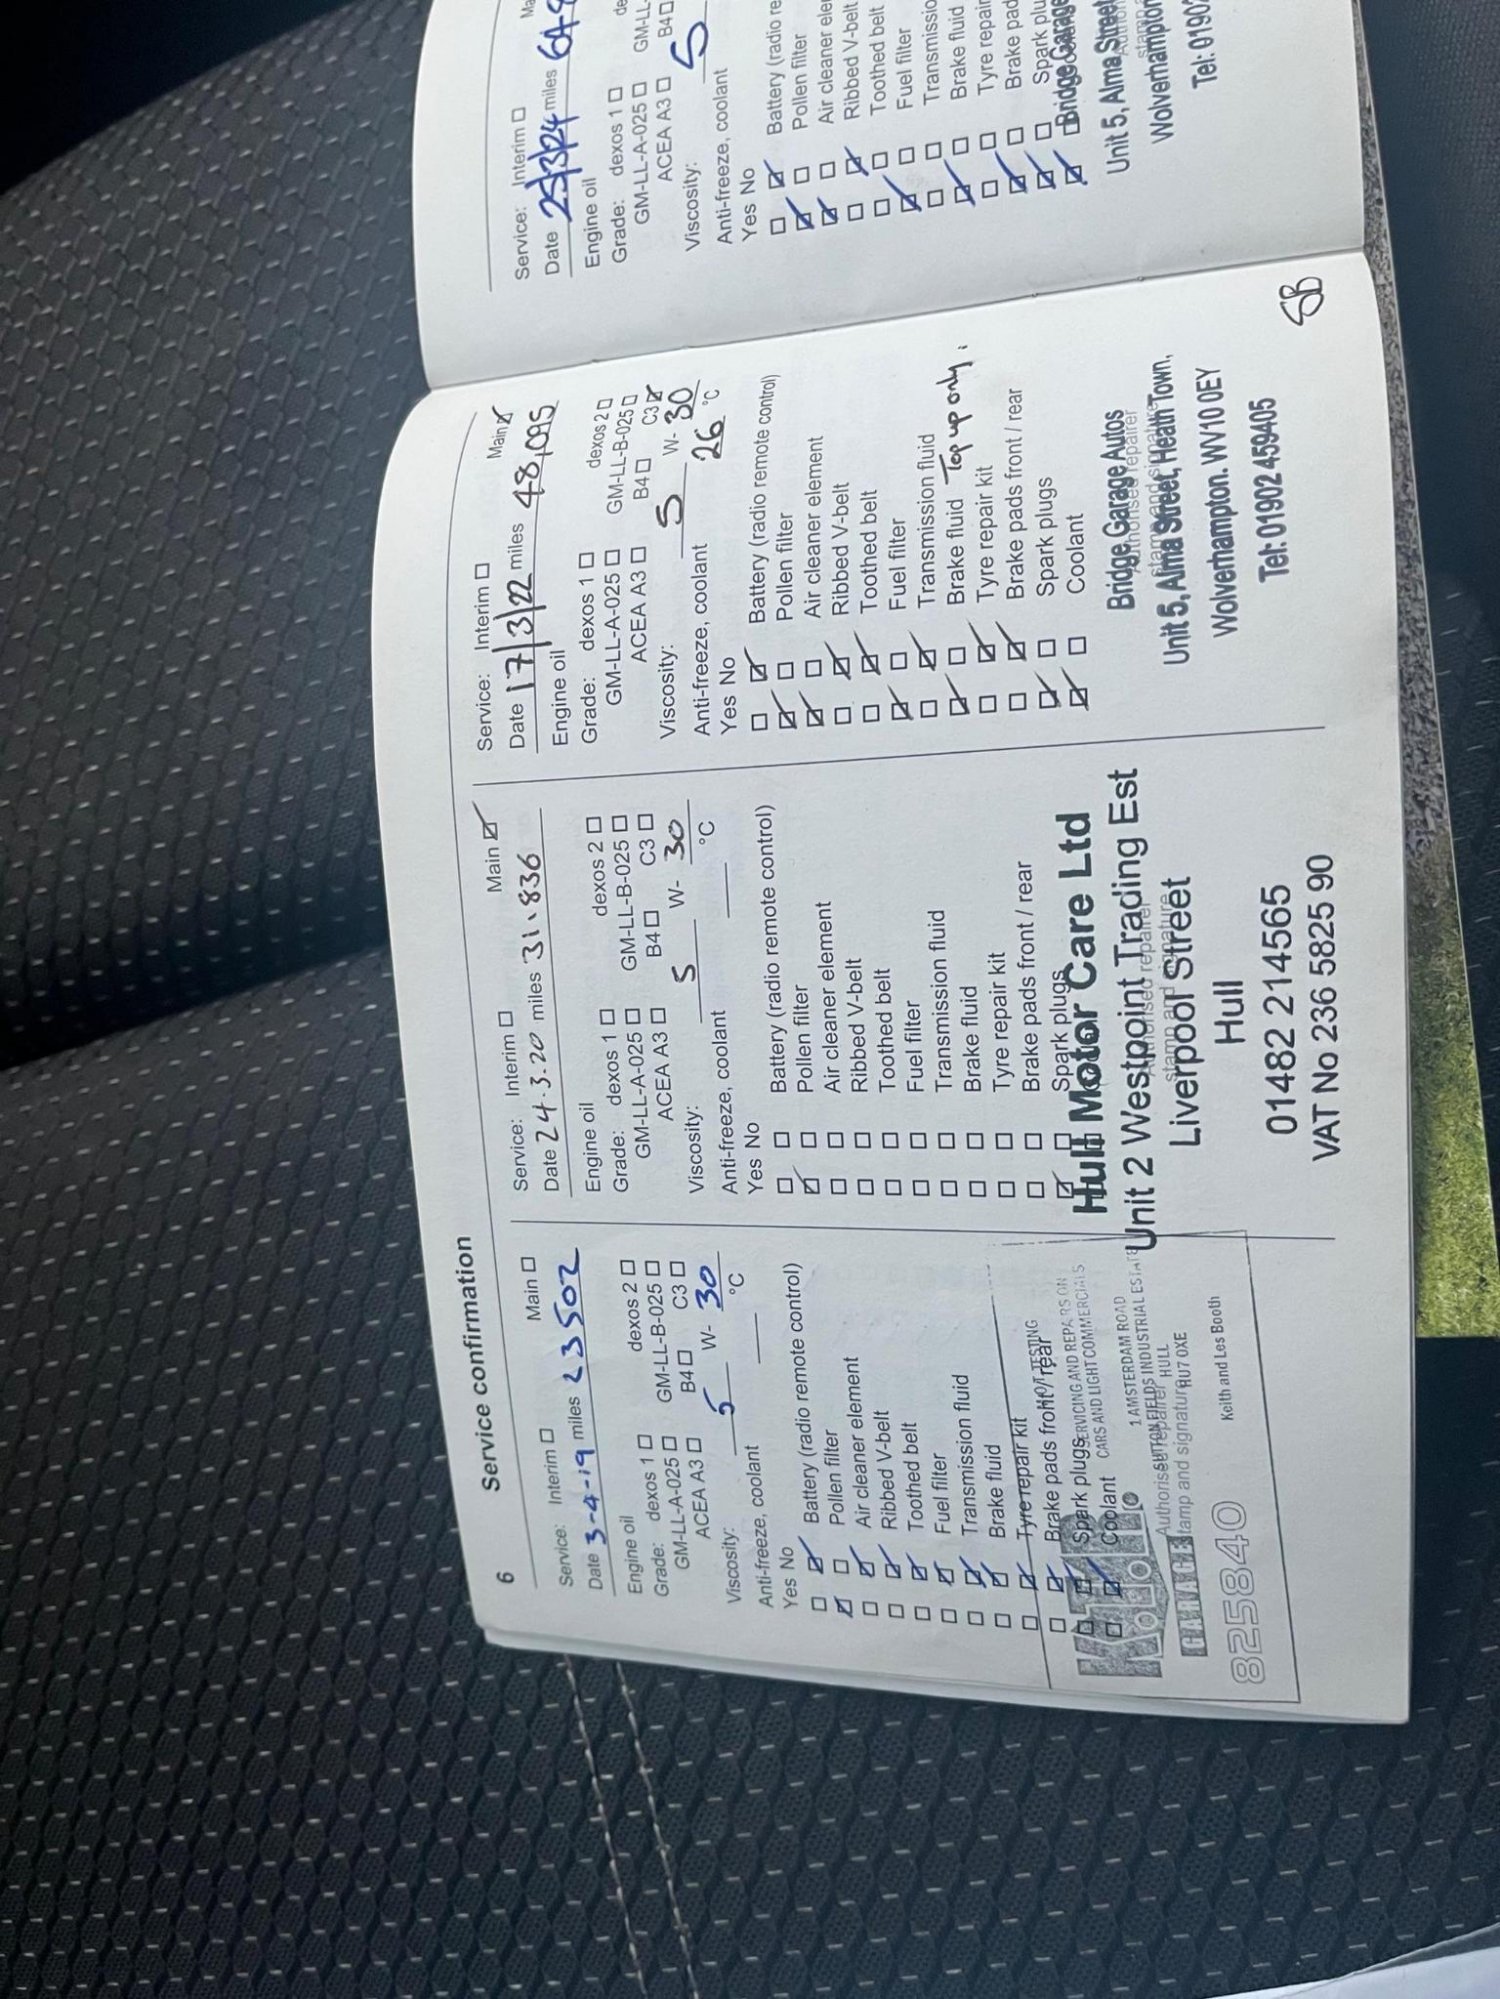 6 Service confirmation
Service: Interim Main
Date 3-4-19 miles 23502
Engine oil
Grade: dexos 1 dexos 2
GM-LL-A-025 GM-LL-B-025
ACEA A3 B4 C3
Viscosity: 5 W- 30
Anti-freeze, coolant °C
Yes No
Battery (radio remote control)
Pollen filter
Air cleaner element
Ribbed V-belt
Toothed belt
Fuel filter
Transmission fluid
Brake fluid
Tyre repair kit
Brake pads front / rear
Spark plugs
Coolant
SERVICING AND REPAIRS ON
CARS AND LIGHT COMMERCIALS
1 AMSTERDAM ROAD
SUTTON FIELDS INDUSTRIAL ESTATE
HULL
HU7 0XE
Authorised repairer
stamp and signature
GARAGE
825840
Keith and Les Booth
Service: Interim Main
Date 24.3.20 miles 31.836
Engine oil
Grade: dexos 1 dexos 2
GM-LL-A-025 GM-LL-B-025
ACEA A3 B4 C3
Viscosity: 5 W- 30
Anti-freeze, coolant °C
Yes No
Battery (radio remote control)
Pollen filter
Air cleaner element
Ribbed V-belt
Toothed belt
Fuel filter
Transmission fluid
Brake fluid
Tyre repair kit
Brake pads front / rear
Spark plugs
Hull Motor Care Ltd
Unit 2 Westpoint Trading Est
Authorised repairer
stamp and signature
Liverpool Street
Hull
01482 214565
VAT No 236 5825 90
Service: Interim Main
Date 17/3/22 miles 48,095
Engine oil
Grade: dexos 1 dexos 2
GM-LL-A-025 GM-LL-B-025
ACEA A3 B4 C3
Viscosity: 5 W- 30
Anti-freeze, coolant 26 °C
Yes No
Battery (radio remote control)
Pollen filter
Air cleaner element
Ribbed V-belt
Toothed belt
Fuel filter
Transmission fluid
Brake fluid Top up only.
Tyre repair kit
Brake pads front / rear
Spark plugs
Coolant
Bridge Garage Autos
Authorised repairer
stamp and signature
Unit 5, Alma Street, Heath Town,
Wolverhampton. WV10 0EY
Tel: 01902 459405
SB
Service: Interim Ma
Date 25/3/24 miles 64-8
Engine oil
Grade: dexos 1 de
GM-LL-A-025 GM-LL-
ACEA A3 B4
Viscosity: 5
Anti-freeze, coolant
Yes No
Battery (radio re
Pollen filter
Air cleaner eler
Ribbed V-belt
Toothed belt
Fuel filter
Transmissio
Brake fluid
Tyre repair
Brake pad
Spark plu
Bridge Garage
Unit 5, Alma Street
stamp a
Wolverhampton
Tel: 01902